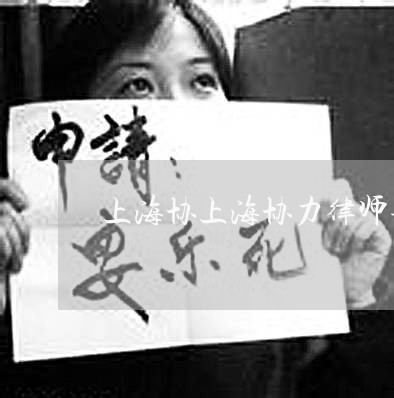 申請：
上海协上海协力律师
安乐死